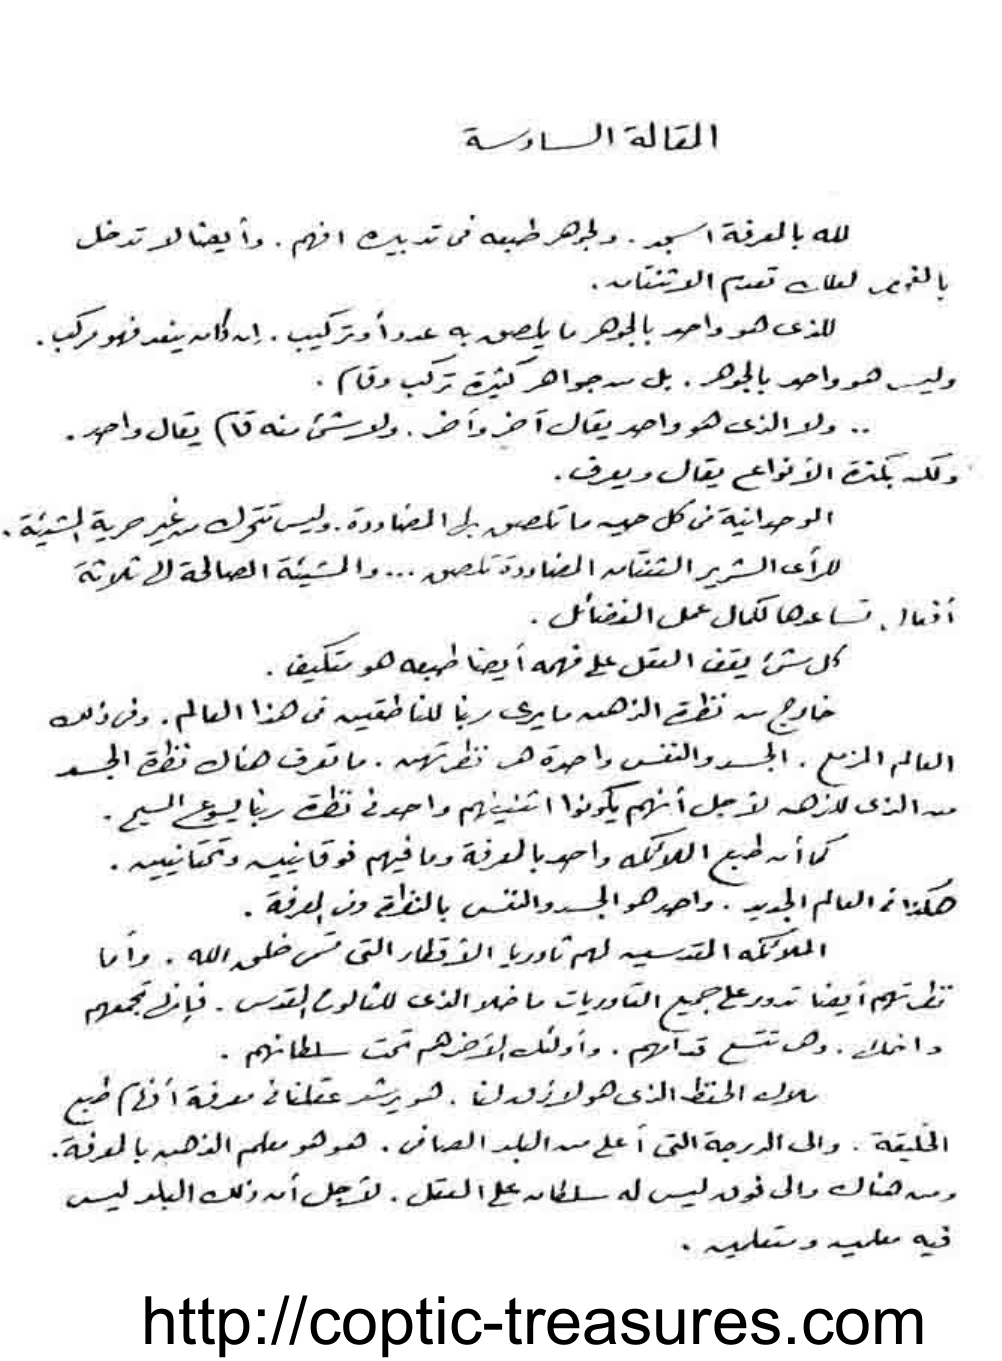 المقالة السادسة
لله بالمعرفة اسجد . ولجوهر طبعه فى تدبيره افهم . وأيضا لا تدخل
بالفحص لعلك تعدم الاثنتان .
للذى هو واحد بالجوهر ما يلصق به عدد أو تركيب . إن كان ينعد فهو مركب .
وليس هو واحد بالجوهر . بل من جواهر كثيرة تركب وقام .
.. ولا الذى هو واحد يقال آخر وآخر . ولا شئ منه قام يقال واحد .
ولكن بكثرة الأنواع يقال ويعرف .
الوحدانية فى كل حين ما تلصق بها المضاددة . وليس تتحرك من غير حرية المشيئة .
للرأى الشرير الثنتان المضاددة تلصق ... والمشيئة الصالحة لى ثلاثة
أفعال . تساعدها لكمال عمل الفضائل .
كل شئ يقف العقل على فهمه أيضا طبعه هو متكيف .
خارج من نظرة الذهن ما يرى ربنا للناطقين فى هذا العالم . وفى ذلك
العالم المزمع . الجسد والنفس واحدة هى نظرتهن . ما تعرف هناك نظرة الجسد
من الذى للذهن لأجل أنهم يكونوا اثنينهم واحد فى نظرة ربنا يسوع المسيح .
كما أن طبع الملائكة واحد بالمعرفة وما فيهم فوقانيين وتحتانيين .
هكذا فى العالم الجديد . واحد هو الجسد والنفس بالنظرة وفى المعرفة .
الملائكة القديسين لهم ثاوريا الأقطار التى خلق الله . وأما
نظرتهم أيضا تدور على جميع الثاوريات ما خلا الذى للثالوث المقدس . فإنها تجمعهم
داخلها . وهى تتسع قدامهم . وأولئك الأخر هم تحت سلطانهم .
ملاك الحفظ الذى هو لازق لنا . هو يرشد عقلنا فى معرفة أفهام طبع
الخليقة . والى الدرجة التى أعلى من البلد الصافى . هو هو معلم الذهن بالمعرفة .
ومن هناك والى فوق ليس له سلطان على العقل . لأجل أن ذلك البلد ليس
فيه معلمين ومتعلمين .
http://coptic-treasures.com